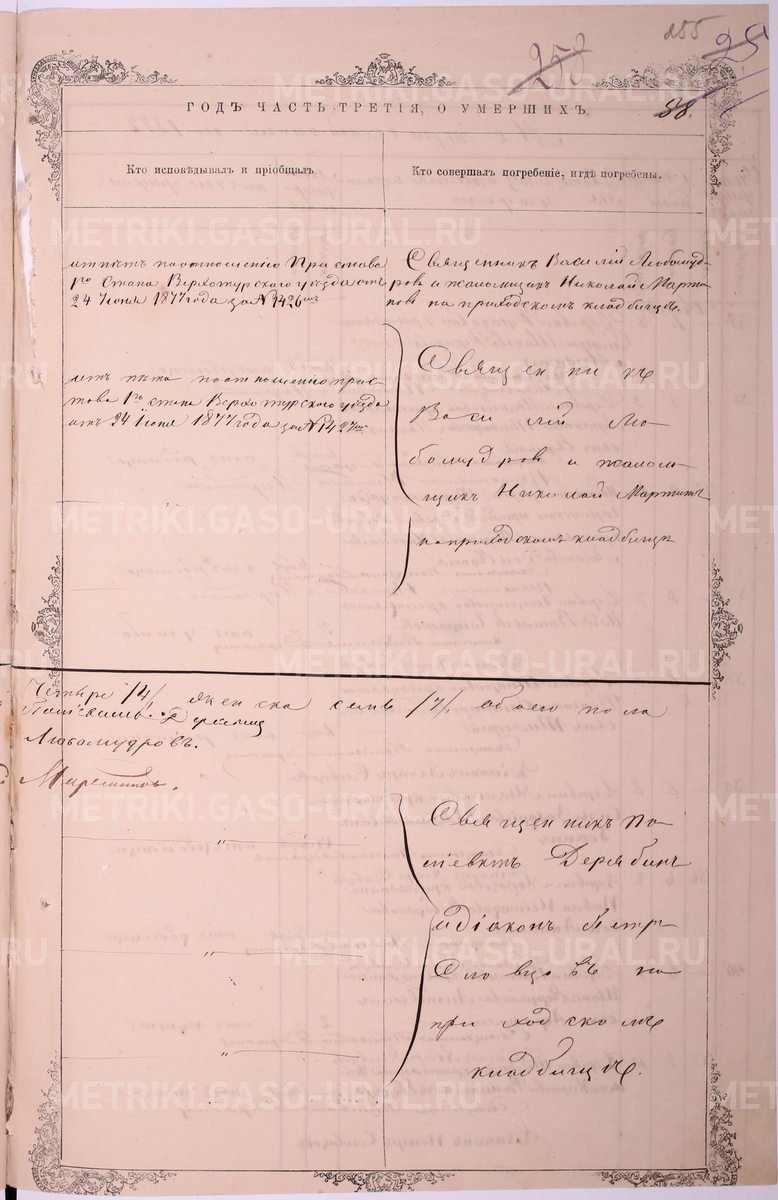 255
253
88.
ГОДЪ ЧАСТЬ ТРЕТІЯ, О УМЕРШИХЪ
Кто исповѣдывалъ и пріобщалъ.
Кто совершалъ погребеніе, и гдѣ погребены.
по отношенію Пристава
1го Стана Верхотурскаго уѣзда отъ
24 Іюня 1877 года за № 1426
Священникъ Василій Любомуд-
ровъ и псаломщикъ Николай Марти-
новъ на приходскомъ кладбищѣ.
по отношенію прис-
това 1го стана Верхотурскаго уѣзда
отъ 24 Іюня 1877 года за № 1427
Священникъ
Василій Лю-
бомудровъ и псалом-
щикъ Николай Мартин
на приходскомъ кладбищѣ
Четыре /4/. женска семь /7/. обоего пола
Любомудровъ.
Священникъ По-
лiевктъ Дерябинъ
и діаконъ Петръ
Словцовъ на
приходскомъ
кладбищѣ.
METRIKI.GASO-URAL.RU